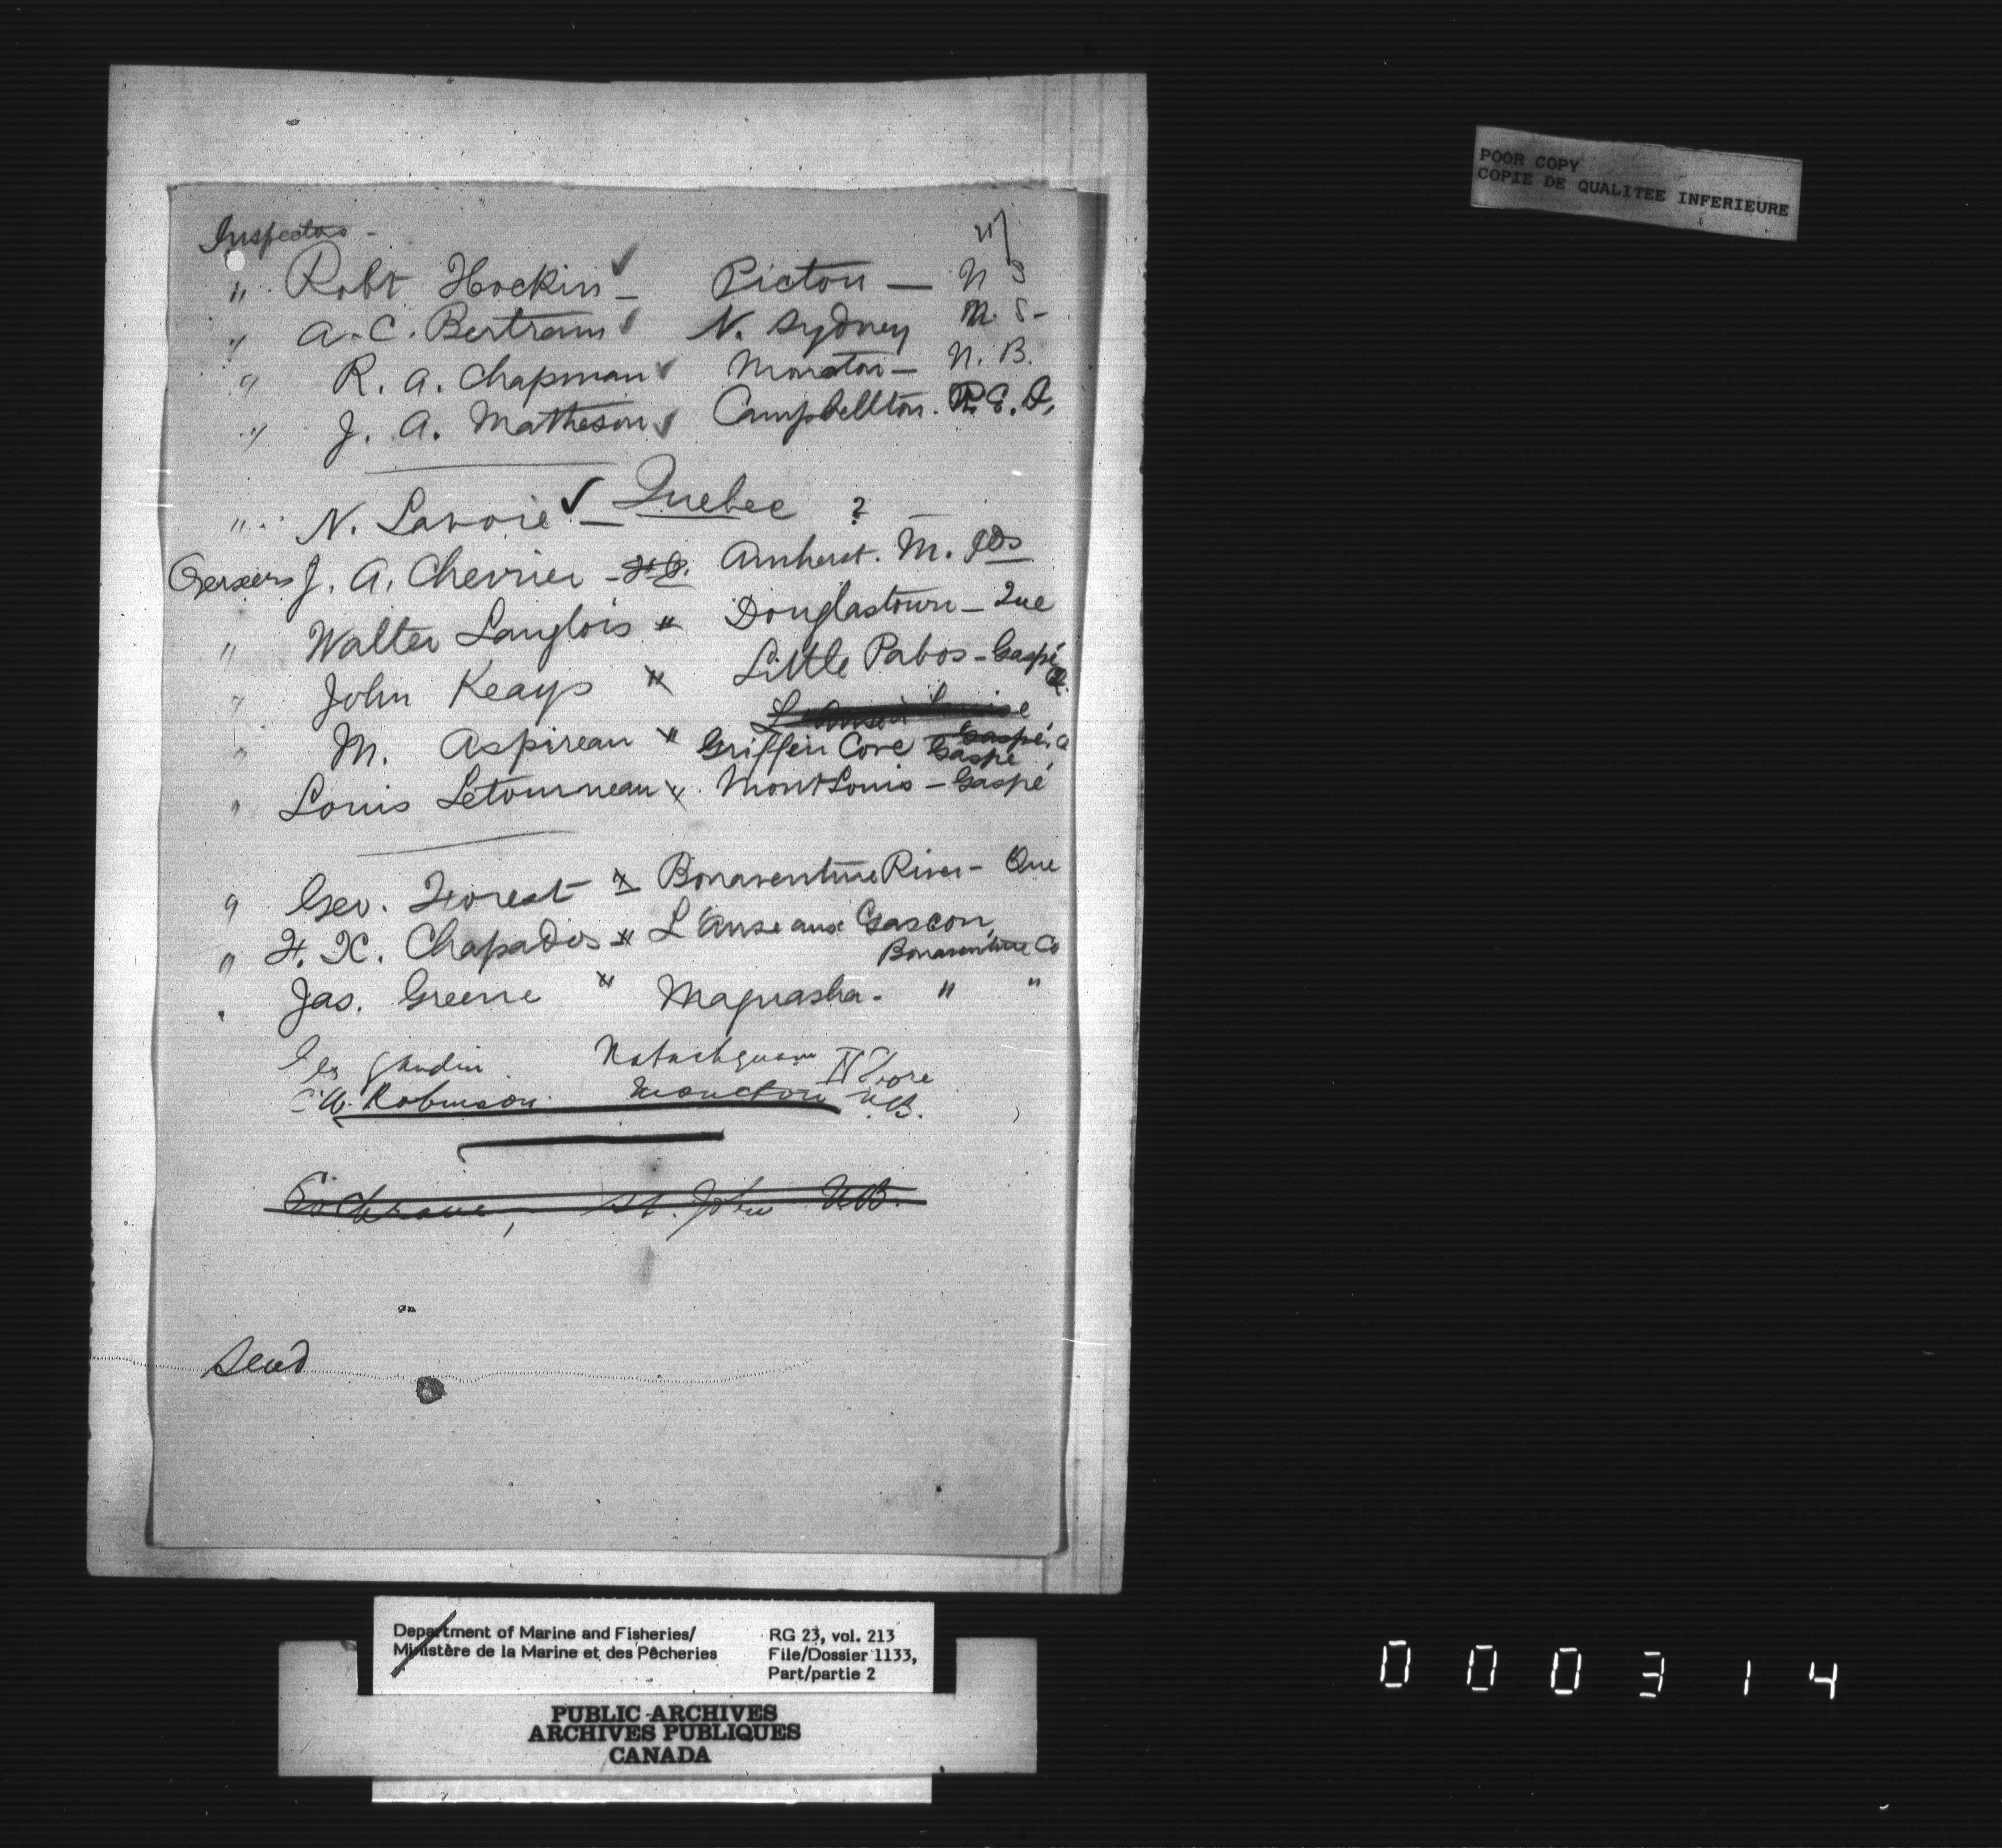 POOR COPY
COPIE DE QUALITEE INFERIEURE
Inspectors -
" Robt Hockin ✓ - Pictou — N S
" A. C. Bertram ✓ N. Sydney N. S -
" R. A. Chapman ✓ Moncton — N. B.
" J. A. Matheson ✓ Campbellton. P. E. I.
" N. Lavoie ✓ - Quebec ? -
Overseers J. A. Chevrier - Amherst. M. Ids
" Walter Langlois " Douglastown - Que
" John Keays " Little Pabos - Gaspé Q.
L'Anse à Louise
Gaspé, Q
" M. Aspireau " Griffin Cove Gaspé
" Louis Letourneau " Mont Louis - Gaspé
" Geo. Forest " Bonaventure River - Que
" F. X. Chapados " L'Anse aux Gascon,
Bonaventure Co
" Jas. Greene " Maguasha. " "
Natashquan N Shore
C. W. Robinson. Moncton N.B.
Cochrane, St. John N.B.
Send
Department of Marine and Fisheries/
Ministère de la Marine et des Pêcheries
RG 23, vol. 213
File/Dossier 1133,
Part/partie 2
PUBLIC ARCHIVES
ARCHIVES PUBLIQUES
CANADA
000314